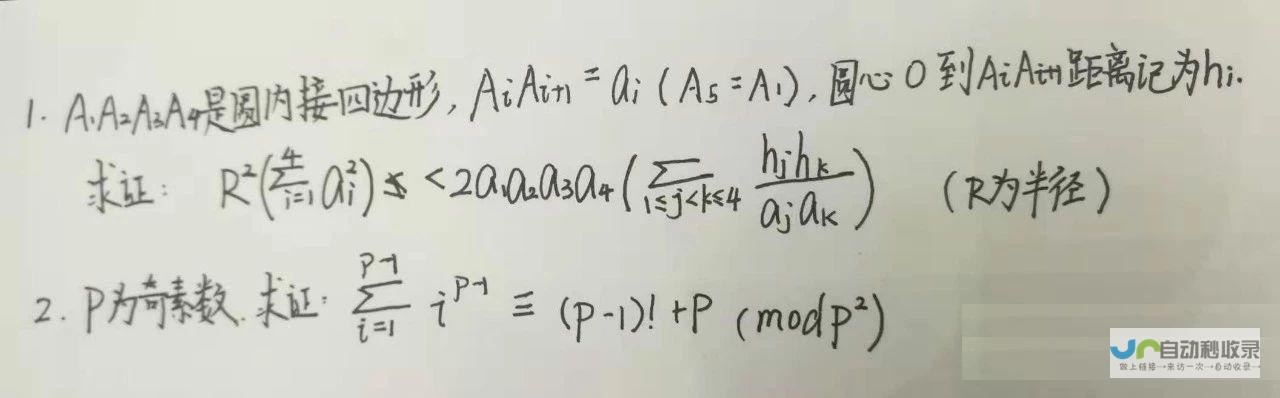 1. A₁A₂A₃A₄是圆内接四边形, AᵢAᵢ₊₁ = aᵢ (A₅=A₁), 圆心O到AᵢAᵢ₊₁距离记为hᵢ.
求证: R²(∑_{i=1}^{4} aᵢ²) < 2a₁a₂a₃a₄(∑_{1≤j<k≤4} \frac{h_j h_k}{a_j a_k}) (R为半径)
2. P为奇素数. 求证: ∑_{i=1}^{P-1} i^{P-1} ≡ (P-1)! + P (mod P²)
自动秒收录
做上链接→来访一次→自动收录→